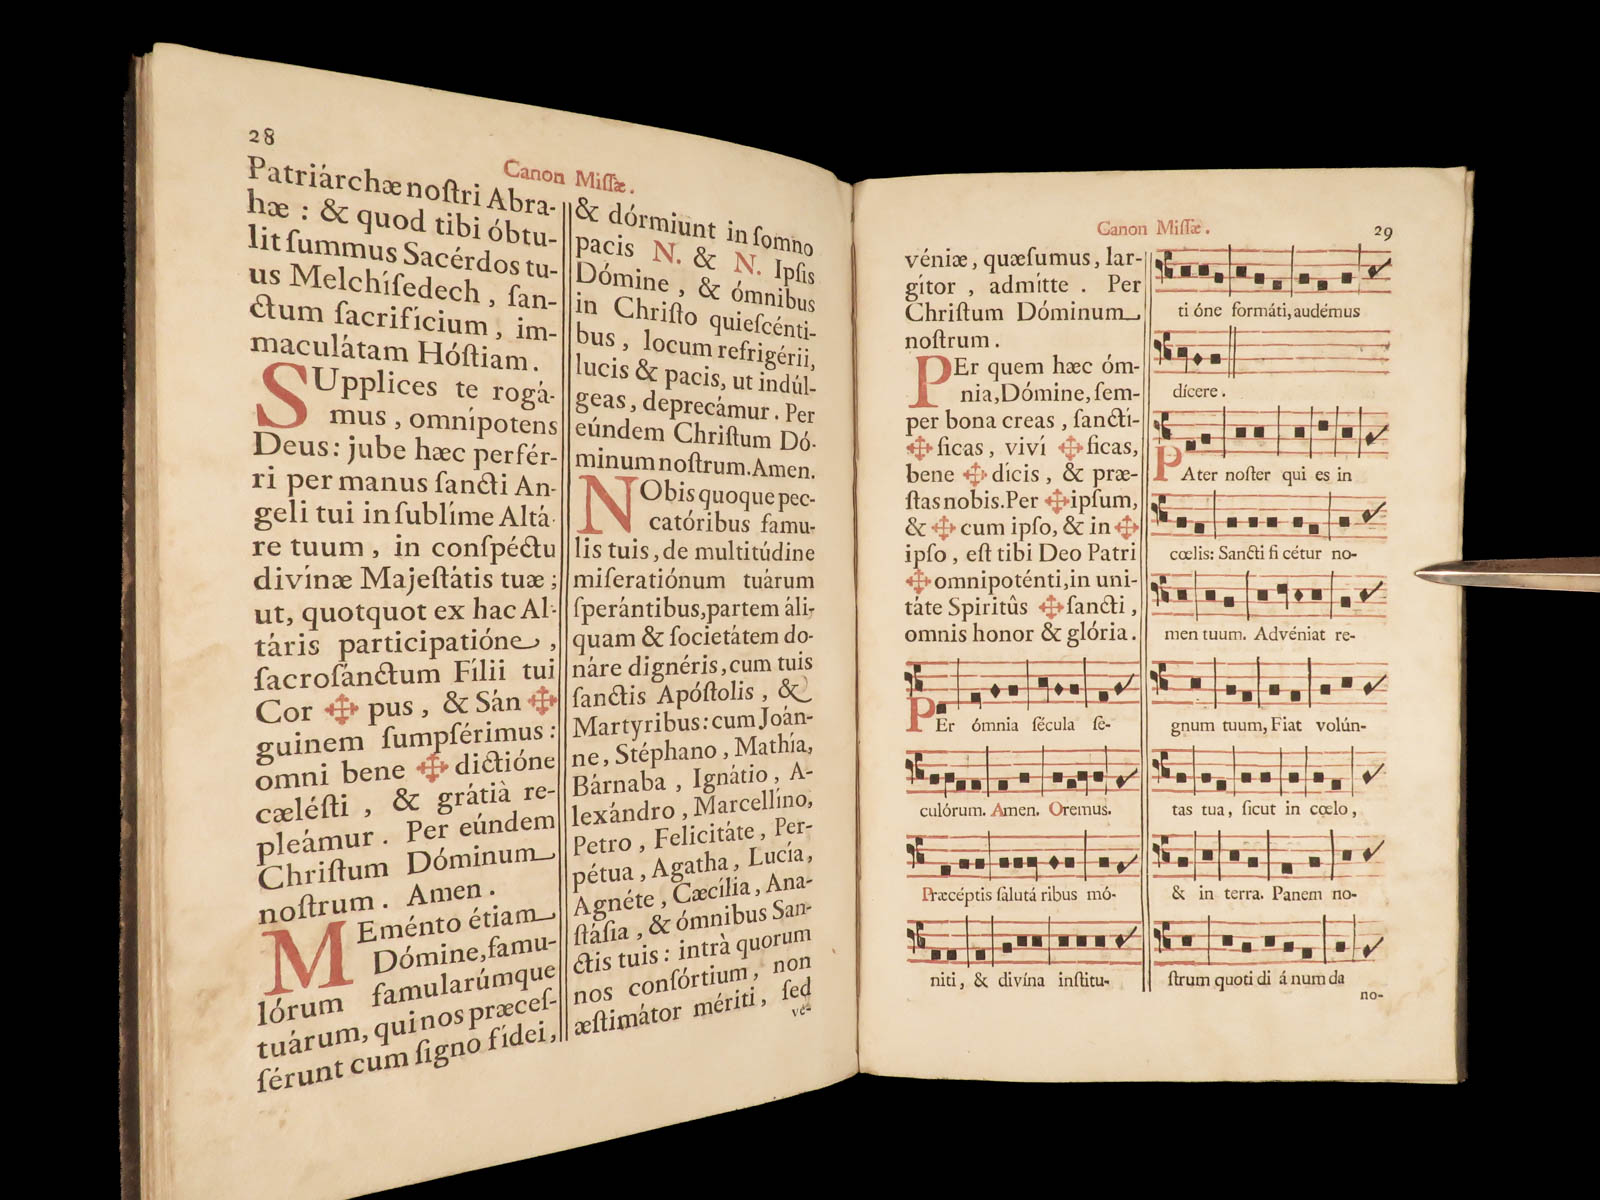 28
Canon Miſſæ.
Patriárchæ noſtri Abra-
hæ : & quod tibi óbtu-
lit ſummus Sacérdos tu-
us Melchíſedech , ſan-
ctum ſacrifícium , im-
maculátam Hóſtiam .
SUpplices te rogá-
mus , omnípotens
Deus : jube hæc perfér-
ri per manus ſancti An-
geli tui in ſublíme Altá-
re tuum , in conſpéctu
divínæ Majeſtátis tuæ ;
ut, quotquot ex hac Al-
táris participatióne ,
ſacroſánctum Fílii tui
Cor ✠ pus , & Sán ✠
guinem ſumpſérimus :
omni bene ✠ dictióne
cæléſti , & grátià re-
pleámur . Per eúndem
Chriſtum Dóminum
noſtrum . Amen .
MEménto étiam
Dómine, famu-
lórum famularúmque
tuárum, qui nos præceſ-
ſérunt cum ſigno fídei ,
& dórmiunt in ſomno
pacis N. & N. Ipſis
Dómine , & ómnibus
in Chriſto quieſcénti-
bus , locum refrigérii,
lucis & pacis, ut indúl-
geas , deprecámur . Per
eúndem Chriſtum Dó-
minum noſtrum. Amen.
NObis quoque pec-
catóribus famu-
lis tuis , de multitúdine
miſeratiónum tuárum
ſperántibus, partem áli-
quam & ſocietátem do-
náre dignéris, cum tuis
ſanctis Apóſtolis , &
Martyribus : cum Joán-
ne , Stéphano , Mathía,
Bárnaba , Ignátio , A-
lexándro , Marcellíno,
Petro , Felicitáte , Per-
pétua , Agatha , Lucía ,
Agnéte , Cæcília , Ana-
ſtáſia , & ómnibus San-
ctis tuis : intrà quorum
nos conſórtium , non
æſtimátor mériti , ſed
vé-
Canon Miſſæ .
29
véniæ , quæſumus , lar-
gítor , admítte . Per
Chriſtum Dóminum
noſtrum .
PEr quem hæc óm-
nia, Dómine, ſem-
per bona creas , ſanctí-
✠ ficas , viví ✠ ficas,
bene ✠ dicis , & præ-
ſtas nobis. Per ✠ ipſum,
& ✠ cum ipſo, & in ✠
ipſo , eſt tibi Deo Patri
✠ omnipoténti, in uni-
táte Spiritûs ✠ ſancti ,
omnis honor & glória .
PEr ómnia ſécula ſe-
culórum. Amen. Oremus.
Præcéptis ſalutá ribus mó-
niti , & divína inſtitu-
ti óne formáti, audémus
dícere .
PAter noſter qui es in
cœlis: Sancti fi cétur no-
men tuum. Advéniat re-
gnum tuum, Fiat volún-
tas tua , ſicut in cœlo ,
& in terra. Panem no-
ſtrum quoti di á num da
no-